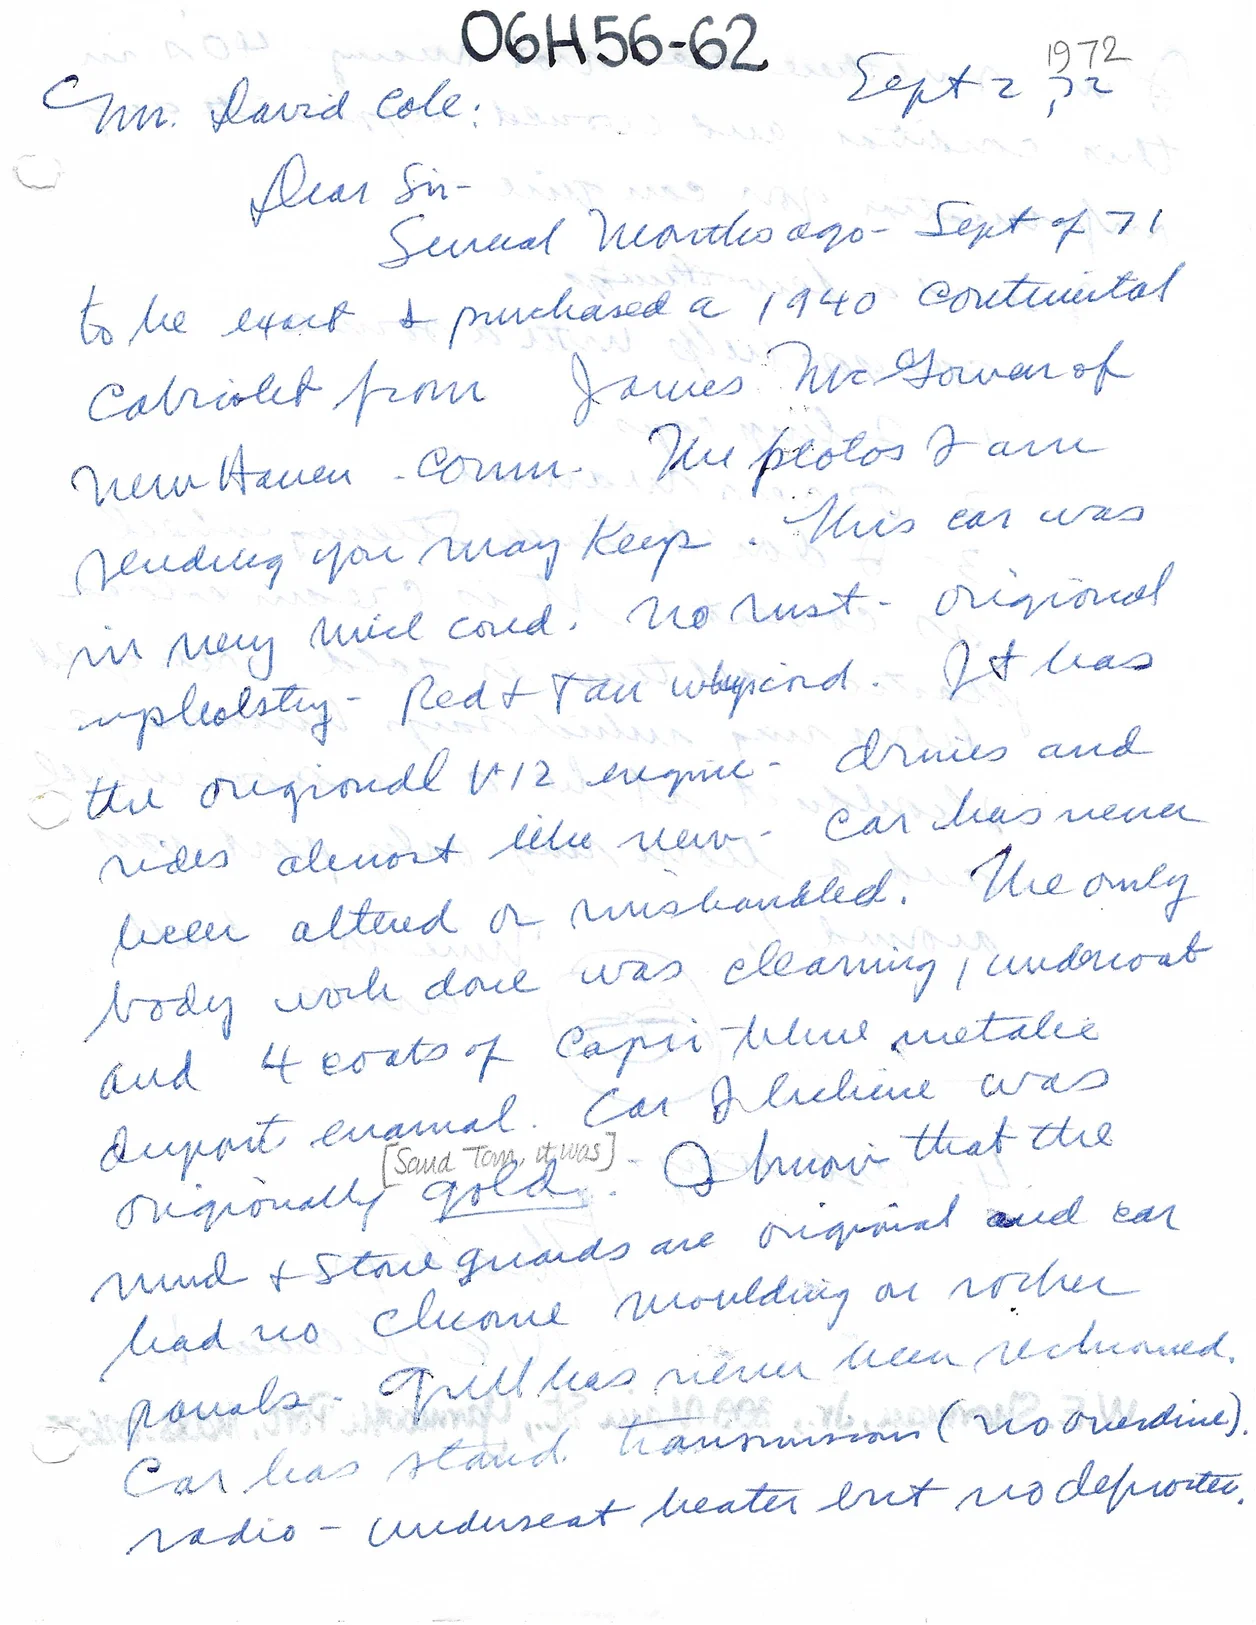 06H56-62
1972
Sept 2, 72
Mr. David Cole:
Dear Sir-
Several Months ago - Sept of 71
to be exact I purchased a 1940 Continental
Cabriolet from James McGowan of
New Haven - Conn. The photos I am
sending you may keep. This car was
in very nice cond. no rust - origional
upholstry - Red & Tan whipcord. It has
the origional V-12 engine - drives and
rides almost like new - car has never
been altered or mishandled. The only
body work done was cleaning, undercoat
and 4 coats of Capri-blue metalic
dupont enamal. Car I believe was
[Sand Tan, it was]
origionally gold. I know that the
mud & Stone guards are original and car
had no chrome moulding on rocker
panals - Grill has never been rechromed.
Car has stand. transmission (no overdrive).
radio - underseat heater but no defroster.